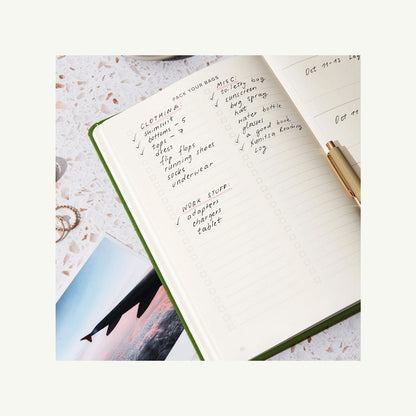 PACK YOUR BAGS
CLOTHING:
swimsuit
bottoms - 5
tops - 7
dress
flip flops
running shoes
socks
underwear
WORK STUFF:
adapters
chargers
tablet
MISC:
toiletry bag
sunscreen
bug spray
hat
water bottle
glasses
a good book
Reading
Log
Oct 11-13
Oct 11